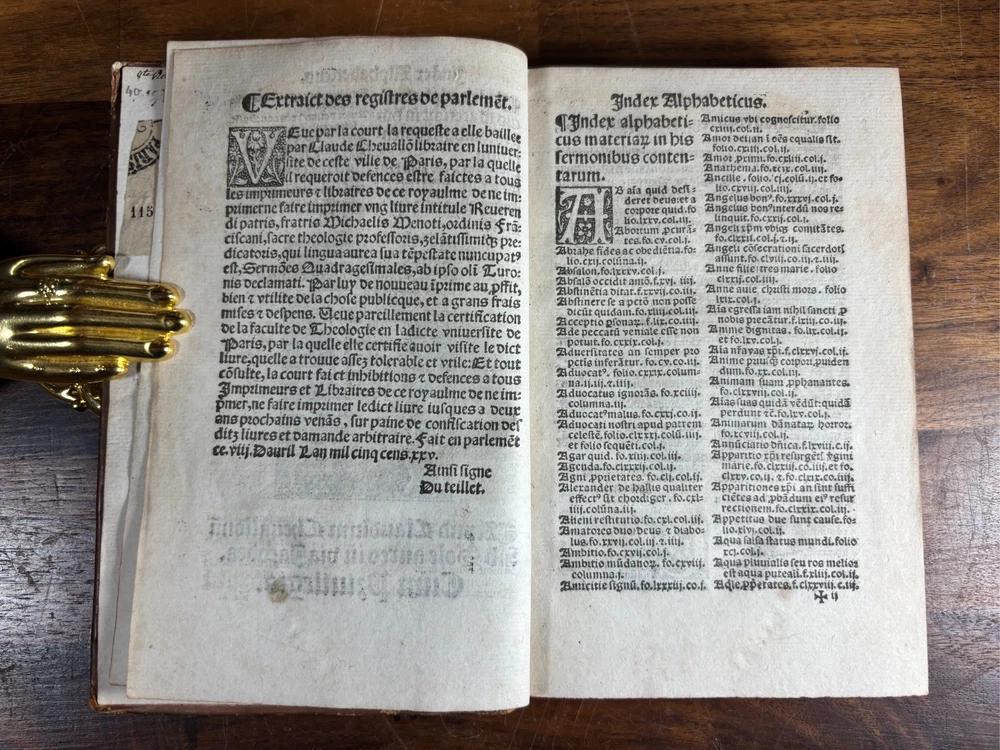 ¶Extraict des registres de parlemẽt.
VEue par la court la requeste a elle baillee
par Claude Cheuallõ libraire en luniuer-
site de ceste ville de Paris, par la quelle
il requeroit defences estre faictes a tous
les imprimeurs ⁊ libraires de ce royaulme de ne im-
primer ne faire imprimer vng liure intitule Reueren
di patris, fratris Michaelis Menoti, ordinis Frã-
ciscani, sacre theologie professoris, zelãtissimiqꝫ pre-
dicatoris, qui lingua aurea sua tẽpestate nuncupatꝰ
est, Sermões Quadragesimales, ab ipso olĩ Turo-
nis declamati. Par luy de nouueau iprime au ꝓffit,
bien ⁊ vtilite de la chose publicque, et a grans frais
mises ⁊ despens. Veue pareillement la certification
de la faculte de Theologie en ladicte vniuersite de
Paris, par la quelle elle certifie auoir visite le dict
liure, quelle a trouue assez tolerable et vtile: Et tout
cõsulte, la court faict inhibitions ⁊ defences a tous
Imprimeurs et Libraires de ce royaulme de ne im-
pmer, ne faire imprimer ledict liure iusques a deux
ans prochains venãs, sur paine de confiscation des
ditz liures et damande arbitraire. Fait en parlemẽt
ce. viij. Dauril Lan mil cinq cens. xxv.
Ainsi signe
Du teillet.
115
Index Alphabeticus.
¶Index alphabeti-
cus materiaꝝ in his
sermonibus conten-
tarum.
AB aĩa quid desi-
deret deus: et a
corpore quid. fo
lio. lxv. col. iij.
Abortum ꝓcurã-
tes. fo. cv. col. j.
Abrahe fides ac obediẽtia. fo-
lio. cxij. colũna. ij.
Absalon. fo. lxxv. col. j.
Absalõ occidit amõ. f. xvj. iiij.
Abstinẽtia ditat. f. xxvij. co. iij.
Abstinere se a pctõ non posse
dicũt quidam. fo. xlij. col. iij.
Acceptio ꝑsonaꝝ. f. lx. co. iij.
Ad peccatũ veniale esse non
potuit. fo. cxxiij. col. j.
Aduersitates an semper pro
pctis inferãtur. fo. cl. co. iij.
Aduocatꝰ. folio. cxxix. colum-
na. ij. iij. ⁊ iiij.
Aduocatus ignorãs. fo. xciiij.
columna. iij.
Aduocatꝰ malus. fo. cxxj. co. ij.
Aduocati nostri apud patrem
celestẽ. folio. clxxij. colũ. iiij.
et folio sequẽti. col. j.
Agar quid. fo. xliij. col. iij.
Agenda. fo. clxxxij. col. ij.
Agni ꝓprietates. fo. clj. col. ij.
Alexander de hallis qualiter
effectꝰ sit chordiger. fo. cxl-
iij. colũna. ij.
Alieni restitutio. fo. cxl. col. iij.
Amatores duo: deus ⁊ diabo-
lus. fo. xxvij. col. ij. ⁊ iij.
Ambitio. fo. cxvij. col. j.
Ambitio mũdanoꝝ. fo. cxviij.
columna. j.
Amicitie signũ. fo. lxxxiij. co. j.
Amicus vbi cognoscitur. folio
cxiij. col. ij.
Amor dei an ĩ oẽs equalis sit.
folio. cxiij. col. ij.
Amor ꝓximi. fo. cxliij. col. j.
Anathema. fo. xcix. col. iij.
Ancille. folio. cj. colũ. ij. et fo-
lio. cxvij. col. iij.
Angelus bonꝰ. fo. xxxvj. col. j.
Angelus bonꝰ interdũ nos re-
linquit. fo. cxxij. col. j.
Angeli xp̃m vbiqꝫ comitãtes.
fo. clxxij. col. j. ⁊ ij.
Angeli cõsecrationi sacerdotꝭ
assunt. fo. clviij. co. ij. ⁊ iij.
Anne filie: tres marie. folio
clxxij. col. iij.
Anne auie christi mors. folio
lxix. col. j.
Aĩa egressa iam nihil sancti ꝑ
nobis precãtur. f. lxij. co. iij.
Anime dignitas. fo. lx. col. iij.
et fo. lxv. col. j.
Aĩa nr̃a vas xp̃i. f. clxxvj. col. ij.
Anime priusqꝫ corpori, puiden
dum. fo. xx. col. iij.
Animam suam ꝓphanantes.
fo. xlij. col. ij.
Aĩas suas quidã vẽdũt: quidã
perdunt ⁊c̃. fo. lxv. col. j.
Animarum dãnataꝝ horror.
fo. xcvij. col. ij.
Annũciatio dñica. f. lxviij. c. ij.
Apparitio xp̃i resurgẽtꝭ v̓gini
marie. fo. clxxiij. co. iij. et fo.
clxxv. co. ij. ⁊ fo. clxxvj. co. iij.
Apparitiones xp̃i an sint suffi
ciẽtes ad ꝓbãdum eiꝰ resur
rectionem. fo. clxxxij. col. ij.
Appetitus due sunt cause. fo-
lio. xlvj. col. ij.
Aqua salsa status mundi. folio
xcj. col. j.
Aqua pluuialis seu ros melior
est aqua puteali. f. xliij. col. ij.
Aq̃ie, ꝓp̃etates. f. clxxxviij. c. iij.
✠ ij